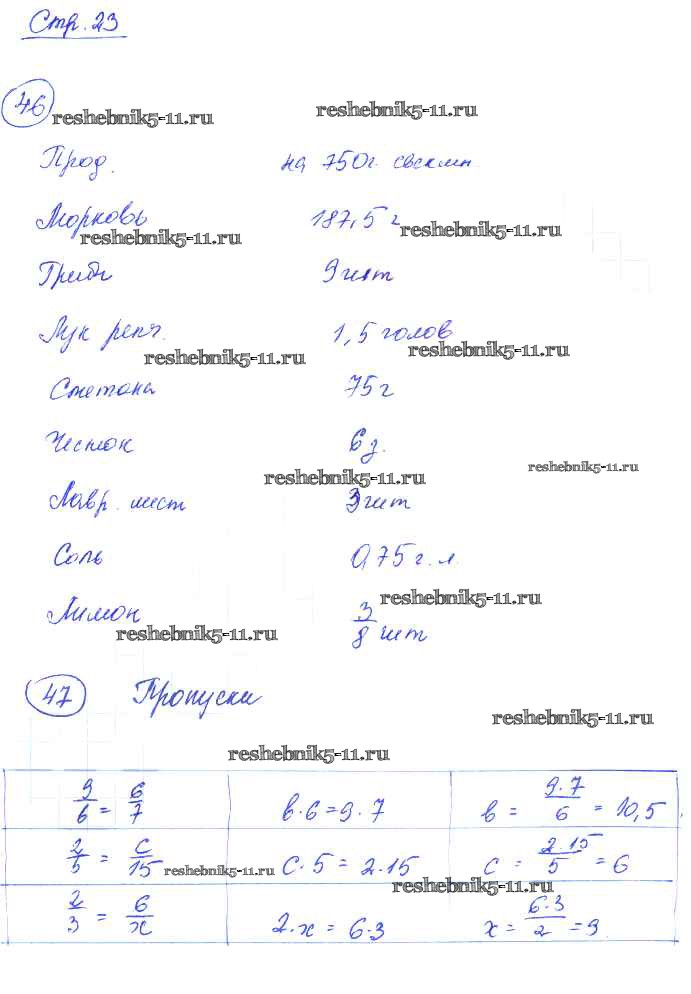 Стр. 23
46
reshebnik5-11.ru
reshebnik5-11.ru
Прод. на 750г. свеклы
Морковь 187,5 г
reshebnik5-11.ru
reshebnik5-11.ru
Грибы 9 шт
Лук репч. 1,5 голов
reshebnik5-11.ru
reshebnik5-11.ru
Сметана 75 г
Чеснок 6 д.
reshebnik5-11.ru
reshebnik5-11.ru
Лавр. лист 3 шт
Соль 0,75 г. л.
Лимон 3/8 шт
reshebnik5-11.ru
reshebnik5-11.ru
47 Пропуски
reshebnik5-11.ru
reshebnik5-11.ru
9/6 = 6/7 в·6=9·7 в = 9·7/6 = 10,5
2/5 = с/15 с·5=2·15 с = 2·15/5 = 6
reshebnik5-11.ru
reshebnik5-11.ru
2/3 = 6/х 2·х=6·3 х = 6·3/2 = 9